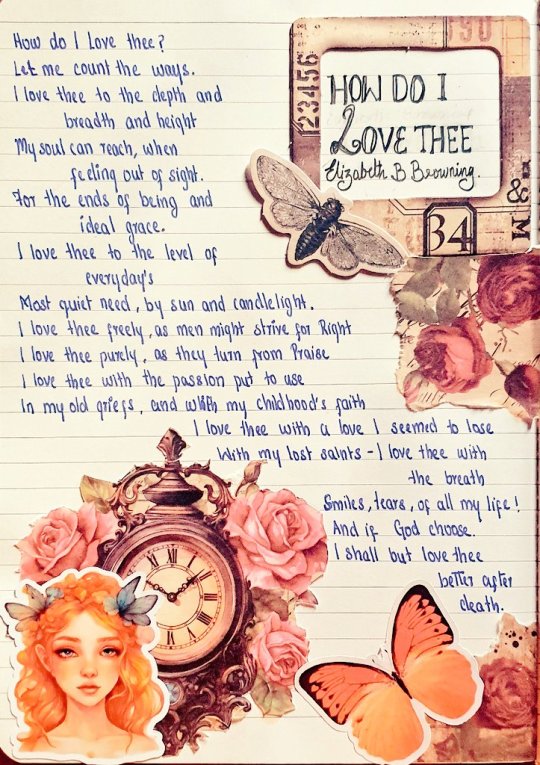 How do I Love thee?
Let me count the ways.
I love thee to the depth and
breadth and height
My soul can reach, when
feeling out of sight.
For the ends of being and
ideal grace.
I love thee to the level of
everyday's
Most quiet need, by sun and candlelight.
I love thee freely, as men might strive for Right
I love thee purely, as they turn from Praise
I love thee with the passion put to use
In my old griefs, and with my childhood's faith
I love thee with a love I seemed to lose
With my lost saints - I love thee with
the breath
Smiles, tears, of all my life!
And if God choose.
I shall but love thee
better after
death.
HOW DO I
LOVE THEE
Elizabeth B Browning.
23456
190
& M
34